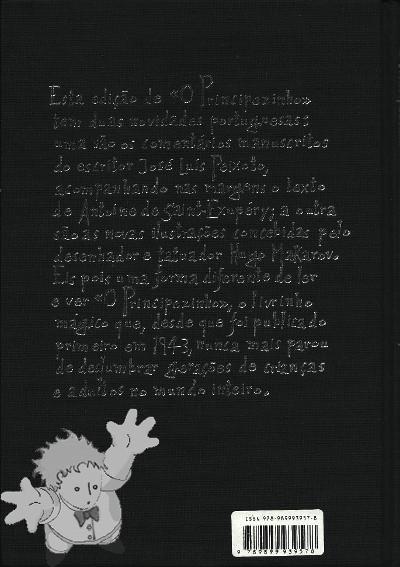 Esta edição de «O Principezinho»
tem duas novidades portuguesas:
uma são os comentários manuscritos
do escritor José Luís Peixoto,
acompanhando nas margens o texto
de Antoine de Saint-Exupéry; a outra
são as novas ilustrações concebidas pelo
desenhador e tatuador Hugo Makarov.
Eis pois uma forma diferente de ler
e ver «O Principezinho», o livrinho
mágico que, desde que foi publicado
primeiro em 1943, nunca mais parou
de deslumbrar gerações de crianças
e adultos no mundo inteiro.
ISBN 978-989993957-8
9 789899 939578